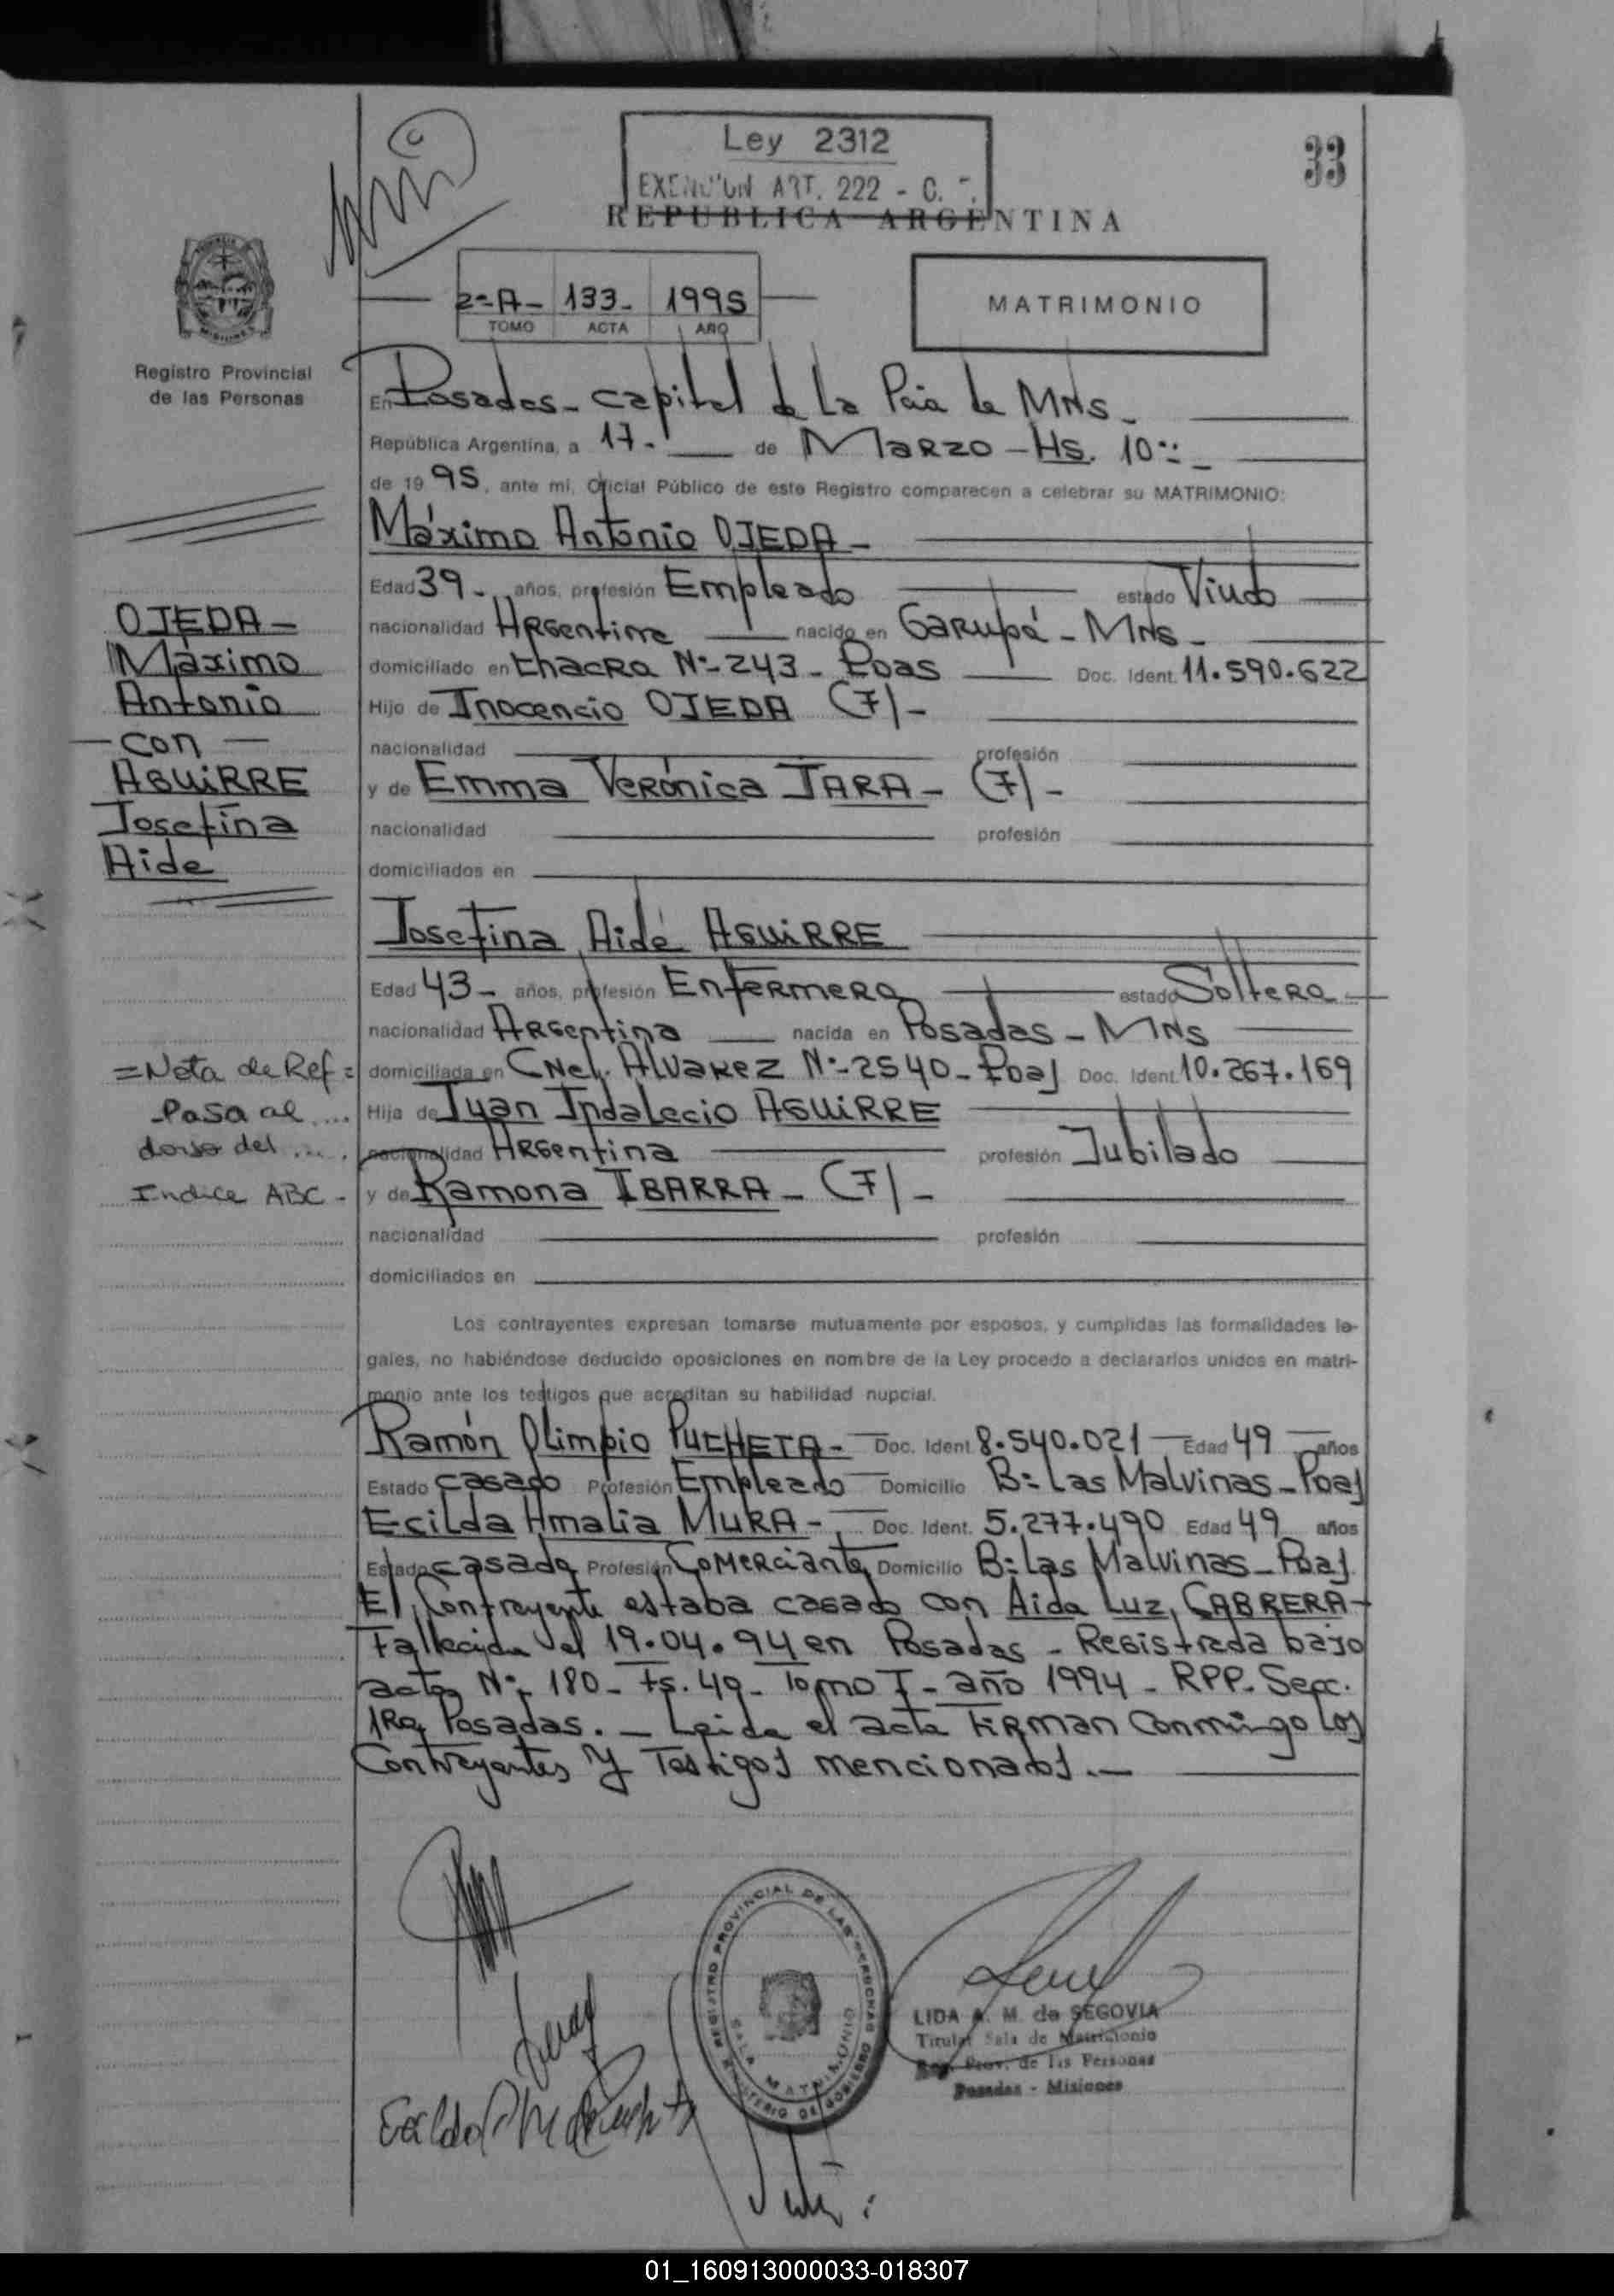 Ley 2312
EXENCION ART. 222 - C.
33
REPUBLICA ARGENTINA
2ª A- 133- 1995
TOMO ACTA AÑO
MATRIMONIO
Registro Provincial
de las Personas
En Posadas - Capital de La Pcia de MNs -
República Argentina, a 17- de Marzo - Hs. 10
de 1995, ante mi, Oficial Público de este Registro comparecen a celebrar su MATRIMONIO:
Máximo Antonio OJEDA -
Edad 39 - años, profesión Empleado estado Viudo
nacionalidad Argentina nacido en Garupá - MNs -
domiciliado en Chacra Nº 243 - Pdas Doc. Ident. 11.590.622
Hijo de Inocencio OJEDA (F) -
nacionalidad profesión
y de Emma Verónica JARA - (F) -
nacionalidad profesión
domiciliados en
OJEDA -
Máximo
Antonio
- con -
AGUIRRE
Josefina
Aide
Josefina Aidé AGUIRRE
Edad 43 - años, profesión Enfermera estado Soltera
nacionalidad Argentina nacida en Posadas - MNs
domiciliada en Cnel. Alvarez Nº 2540 - Pdas Doc. Ident. 10.267.169
Hija de Juan Indalecio AGUIRRE
nacionalidad Argentina profesión Jubilado
y de Ramona IBARRA - (F) -
nacionalidad profesión
domiciliados en
= Nota de Ref =
Pasa al ....
dorso del ....
Indice ABC -
Los contrayentes expresan tomarse mutuamente por esposos, y cumplidas las formalidades le-
gales, no habiéndose deducido oposiciones en nombre de la Ley procedo a declararlos unidos en matri-
monio ante los testigos que acreditan su habilidad nupcial.
Ramón Olimpio PUCHETA - Doc. Ident. 8.540.021 Edad 49 años
Estado casado Profesión Empleado Domicilio Bº Las Malvinas - Pdas
Ecilda Amalia MURA - Doc. Ident. 5.277.490 Edad 49 años
Estado casada Profesión Comerciante Domicilio Bº Las Malvinas - Pdas
El Contrayente estaba casado con Aida Luz CABRERA -
Fallecida el 19.04.94 en Posadas - Registrada bajo
acta Nº 180 - Fs. 49 - Tomo I - año 1994 - RPP - Secc.
1Ra Posadas. - Leida el acta firman conmigo los
Contrayentes y Testigos mencionados. -
REGISTRO PROVINCIAL DE LAS PERSONAS
SALA MATRIMONIO
MINISTERIO DE GOBIERNO
LIDA A. M. de SEGOVIA
Titular Sala de Matrimonio
Reg. Prov. de las Personas
Posadas - Misiones
01_160913000033-018307